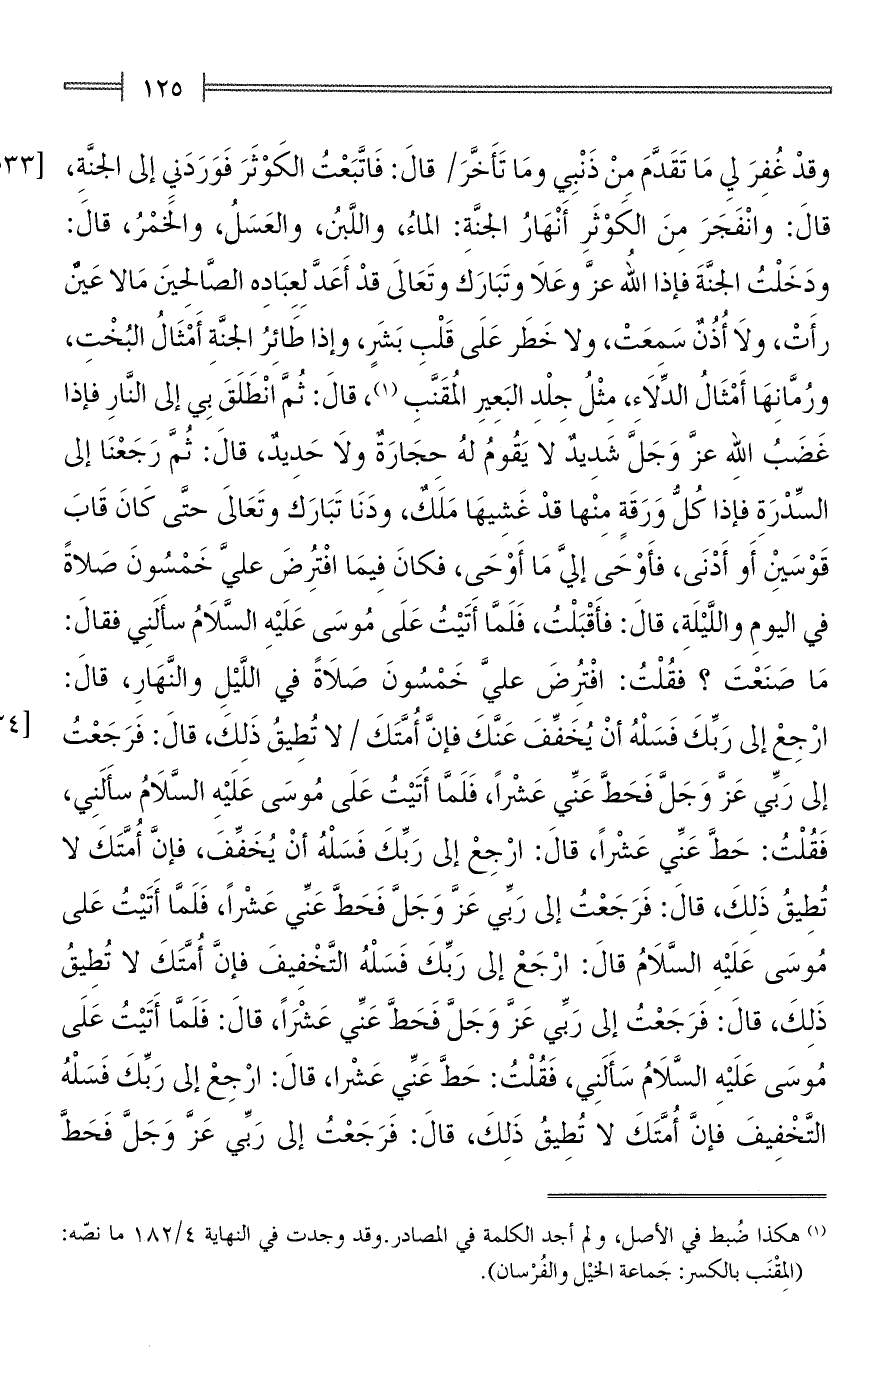 ١٢٥
وقدْ غُفِرَ لي مَا تَقَدَّمَ مِنْ ذَنْبِي ومَا تَأَخَّرَ/ قالَ: فَاتَّبَعْتُ الكَوْثَرَ فَوَرَدَنِي إلى الجنَّة،
قالَ: وانْفَجَرَ مِنَ الكَوْثَرِ أَنْهَارُ الجنَّة: الماءُ، واللَّبنُ، والعَسَلُ، والخَمْرُ، قالَ:
ودَخَلْتُ الجنَّةَ فإذا اللهُ عزَّ وعَلَا وتَبَارَك وتَعَالَى قدْ أَعَدَّ لِعِبَاده الصَّالِحينَ مَالا عَينٌ
رأتْ، ولَا أُذُنٌ سَمِعَتْ، ولا خَطَر عَلَى قَلْبِ بَشَرٍ، وإذا طَائِرُ الجنَّةِ أَمْثَالُ البُخْتِ،
ورُمَّانِهَا أَمْثَالُ الدِّلَاءِ، مثْلُ جِلْد البَعيرِ المُقَنَّبِ (١)، قالَ: ثُمَّ انْطَلَقَ بِي إلى النَّارِ فإذا
غَضَبُ الله عزَّ وَجَلَّ شَديدٌ لا يَقُومُ لهُ حجَارَةٌ ولَا حَديدٌ، قالَ: ثُمَّ رَجَعْنَا إلى
السِّدْرَة فإذا كُلُّ وَرَقَةٍ مِنْها قدْ غَشِيهَا مَلَكٌ، ودَنَا تَبَارَك وتَعَالَى حتَّى كَانَ قَابَ
قَوْسَيْنِ أو أَدْنَى، فأَوْحَى إليَّ مَا أَوْحَى، فكانَ فِيمَا افْتُرِضَ عليَّ خَمْسُونَ صَلاةً
في اليومِ واللَّيْلَة، قالَ: فأَقْبَلْتُ، فَلَمَّا أَتَيْتُ عَلَى مُوسَى عَلَيْه السَّلَامُ سألَنِي فقالَ:
مَا صَنَعْتَ ؟ فقُلْتُ: افْتُرِضَ عليَّ خَمْسُونَ صَلَاةً في اللَّيْلِ والنَّهَارِ، قالَ:
ارْجِعْ إلى رَبِّكَ فَسَلْهُ أنْ يُخَفِّفَ عَنْكَ فإنَّ أُمَّتَكَ / لا تُطِيقُ ذَلِكَ، قالَ: فَرَجَعْتُ
إلى رَبِّي عَزَّ وَجَلَّ فَحَطَّ عَنِّي عَشْراً، فَلَمَّا أَتَيْتُ عَلَى مُوسَى عَلَيْه السَّلَامُ سألَنِي،
فَقُلْتُ: حَطَّ عَنِّي عَشْراً، قالَ: ارْجِعْ إلى رَبِّكَ فَسَلْهُ أنْ يُخَفِّفَ، فإنَّ أُمَّتَكَ لا
تُطِيقُ ذَلِكَ، قالَ: فَرَجَعْتُ إلى رَبِّي عَزَّ وَجَلَّ فَحَطَّ عَنِّي عَشْراً، فَلَمَّا أَتَيْتُ عَلى
مُوسَى عَلَيْه السَّلَامُ قالَ: ارْجَعْ إلى رَبِّكَ فَسَلْهُ التَّخْفِيفَ فإنَّ أُمَّتَكَ لا تُطِيقُ
ذَلِكَ، قالَ: فَرَجَعْتُ إلى رَبِّي عَزَّ وَجَلَّ فَحَطَّ عَنِّي عَشْرَاً، قالَ: فَلَمَّا أَتَيْتُ عَلَى
مُوسَى عَلَيْه السَّلَامُ سَألَنِي، فَقُلْتُ: حَطَّ عَنِّي عَشْرا، قالَ: ارْجِعْ إلى رَبِّكَ فَسَلْهُ
التَّخْفِيفَ فإنَّ أُمَّتَكَ لا تُطِيقُ ذَلِكَ، قالَ: فَرَجَعْتُ إلى رَبِّي عَزَّ وَجَلَّ فَحَطَّ
(١) هكذا ضُبط في الأصل، ولم أجد الكلمة في المصادر.وقد وجدت في النهاية ١٨٢/٤ ما نصّه:
(المِقْنَب بالكسر: جَماعة الخيْل والفُرْسان).